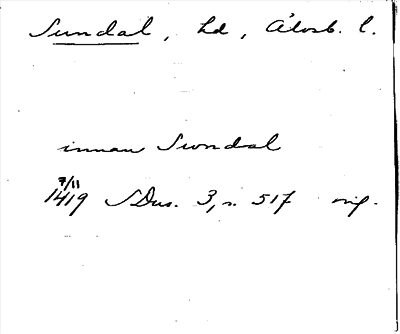 Sundal, hd, Älvsb. l.
innan Swndal
7/11
1419 SDns. 3, s. 517 orig.